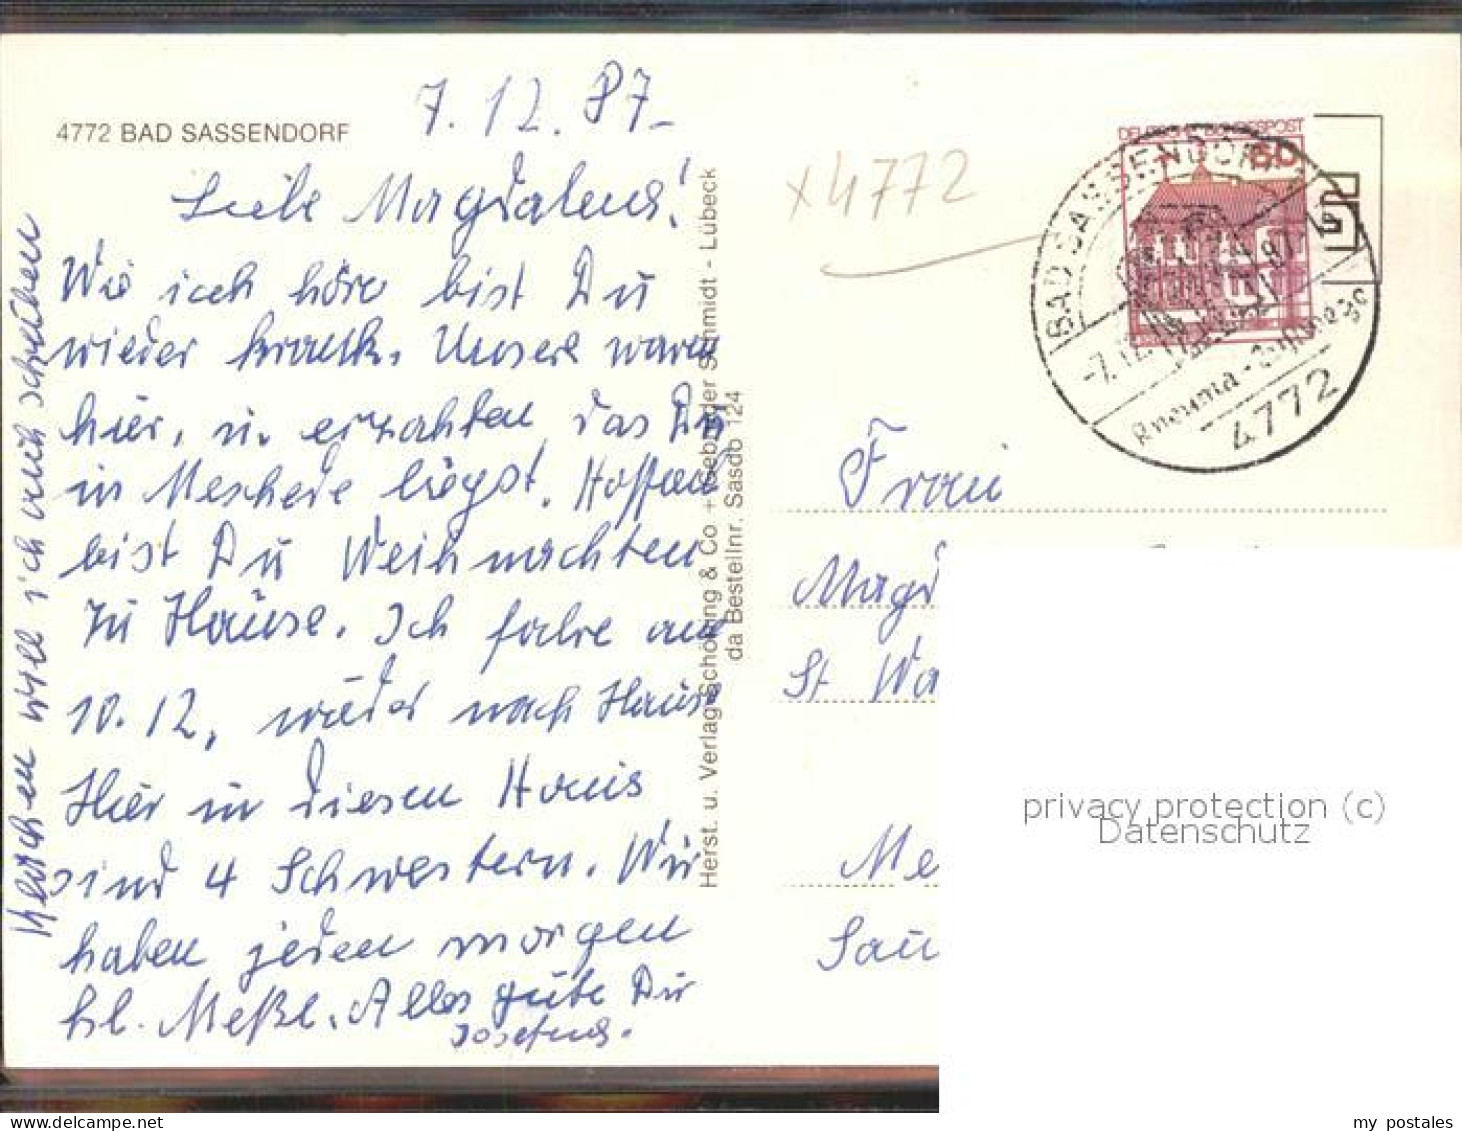 7.12.87-
4772 BAD SASSENDORF
Liebe Magdalena!
Wie ich höre bist Du
wieder krank. Unsere waren
hier, u. erzahlten das Du
in Meschede liegst. Hoffend
bist Du Weihnachten
zu Hause. Ich fahre am
10.12, wieder nach Hause
Hier in diesen Haus
sind 4 Schwestern. Wir
haben jeden morgen
hl. Meße. Alles gute Dir
Josefina.
will ich auch schreiben
Herst. u. Verlag Schöning & Co + Gebrüder Schmidt - Lübeck
da Bestellnr. Sasdo 124
x 4772
DEUTSCHE BUNDESPOST
60
BAD SASSENDORF
-7.12.87-
Rheuma-
4772
Frau
Magd
St Wa
Me
Sau
privacy protection (c)
Datenschutz
my postales